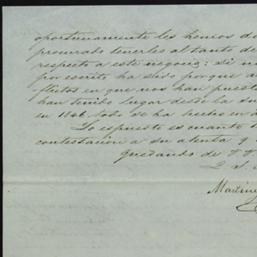 oportunamente les hemos d
procurado tenerles al tanto de
respecto a este negocio: Si n
por escrito ha sido porque
en que nos han puest
han tenido lugar desde la
en 1846 todo se ha hecho en
Lo espuesto es cuanto
contestacion a su atenta y
quedando de V.V.
Q. S.
Martine